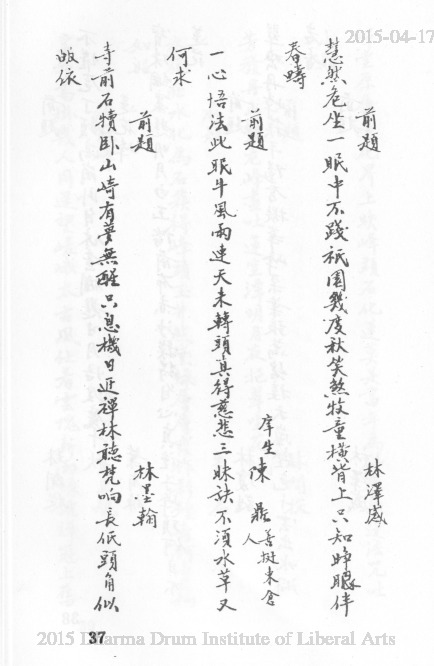 2015-04-17
前題
林澤威
慧然危坐一眠中不踐祇園幾度秋笑煞牧童橫背上只知睜眼伴
春疇
前題
庠生陳鼎善挺朱倉人
一心悟法此眠牛風雨連天未轉頭真得慈悲三昧訣不須水草又
何求
前題
林墨翰
寺前石犢臥山崎有夢無醒只息機日近禪林聽梵响長低頭角似
皈依
37
2015 Dharma Drum Institute of Liberal Arts